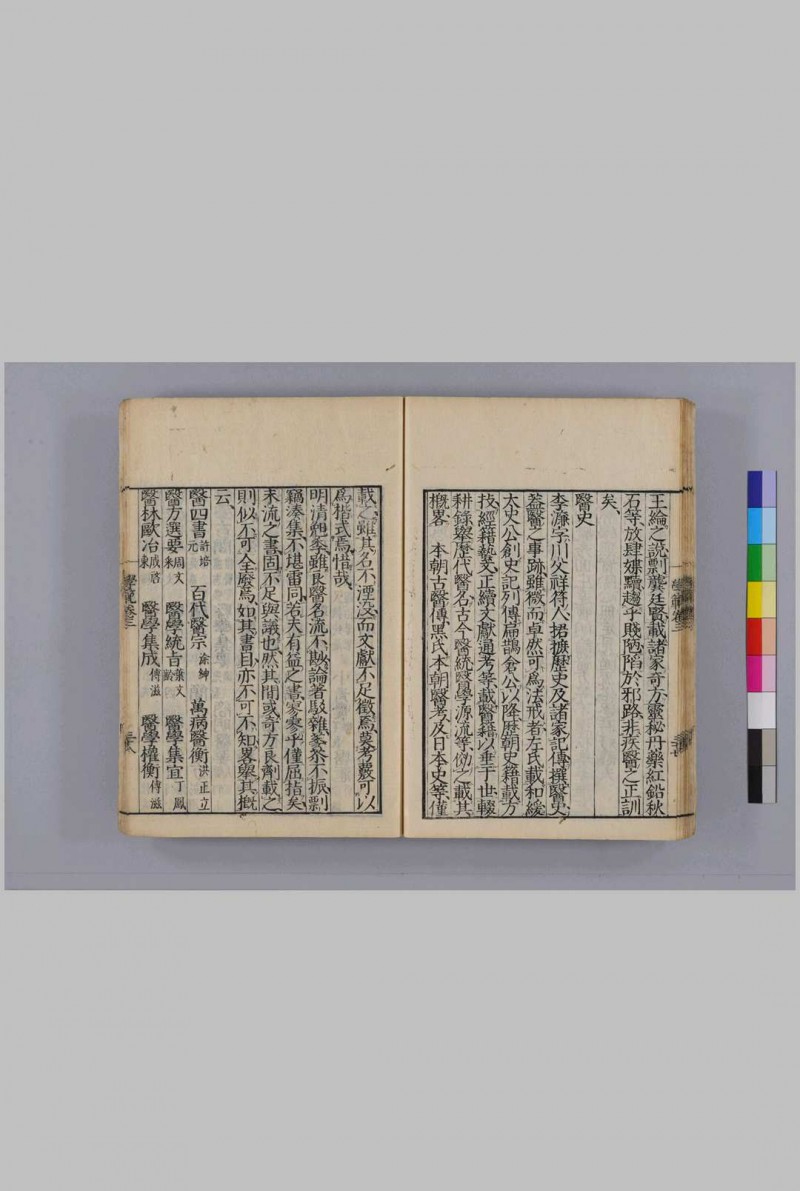 王綸之說剽龔廷賢載諸家奇方靈秘丹藥紅鉛秋
石等放肆媟驕趨乎賤陋陷於邪路非疾醫之正訓
矣
醫史
李濂字川父祥符人捃摭歷史及諸家記傳撰醫史
蓋醫之事跡雖微而卓然可為法戒者左氏載和緩
太史公創史記列傳扁鵲倉公以降歷朝史籍載方
技經籍藝文正續文獻通考等載醫籍以垂于世輟
耕錄舉歷代醫名古今醫統醫學源流等傚之載其
概畧 本朝古醫傳黑氏本朝醫考及日本史等僅
載之雖其名不湮沒而文獻不足徵焉莫考覈可以
為楷式焉惜哉
明清抱季雖艮醫名流不尠論著駁雜萎苶不振剽
竊湊集不堪雷同若夫有益之書寥寥乎僅屈指矣
末流之書固不足與議也然其間或奇方良劑載之
則似不可全廢焉如其書目亦不可不知畧舉其概
云
醫四書 許培元 百代醫宗 涂紳 萬病醫衡 洪正立
醫方選要 周文采 醫學統旨 葉文齡 醫學集宜 丁鳳
醫林歐冶 成啓東 醫學集成 傅滋 醫學權衡 傅滋
學範卷三 三十八